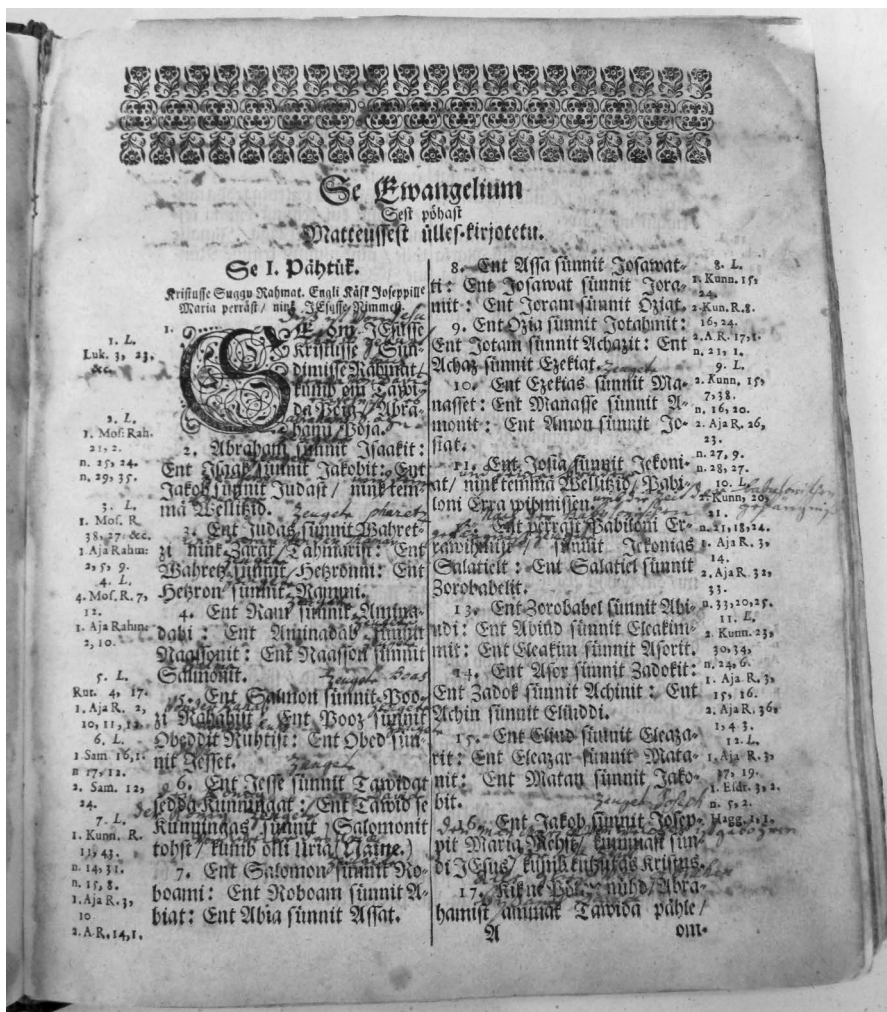 Se Ewangelium
Sest pöhast
Matteussest ülles-kirjotetu.
Se I. Pähtük.
Kristusse Suggu Rahmat. Engli Käsk Joseppille
Maria perräst / nink JEsusse Nimmest.
1.
SE om JEsusse
Kristusse / Sün-
dimisse Rahmat /
kumb om Tawi-
da Poig / Abra-
hami Poja.
2. Abraham sünnit Isaakit:
Ent Isaak sünnit Jakobit: Ent
Jakob sünnit Judast / nink tem-
mä Wellitzid.
3. Ent Judas sünnit Pahret-
zi nink Zarat / Tahmarist: Ent
Pahretz sünnit / Hetzronni: Ent
Hetzron sünnit Rammi.
4. Ent Ram sünnit Amina-
dabi: Ent Aminadab sünnit
Naassonit: Ent Naasson sünnit
Salmonit.
5. Ent Salmon sünnit Poo-
zi Rahabist: Ent Pooz sünnit
Obeddit Ruhtist: Ent Obed sün-
nit Jesset.
6. Ent Jesse sünnit Tawidat
sedda Kunningat: Ent Tawid se
Kunningas sünnit / Salomonit
tohst / kumb olli Uria / (Naine.)
7. Ent Salomon sünnit Ro-
boami: Ent Roboam sünnit A-
biat: Ent Abia sünnit Assat.
1. L.
Luk. 3, 23.
&c.
2. L.
1. Mos: Rah.
21, 2.
n. 25, 24.
n. 29, 35.
3. L.
1. Mos. R.
38, 27. &c.
1 Aja Rahm:
2, 5, 9.
4. L.
4. Mos. R. 7,
12.
1. Aja Rahm:
2, 10.
5. L.
Rut. 4, 17.
1. Aja R. 2,
10, 11, 12.
6. L.
1 Sam 16, 1.
n 17, 12.
2. Sam. 12,
24.
7. L.
1. Kunn. R.
11, 43.
n. 14, 31.
n. 15, 8.
1. Aja R. 3,
10
2. A R. 14, 1.
8. Ent Assa sünnit Josawat-
ti: Ent Josawat sünnit Jora-
mit: Ent Joram sünnit Oziat.
9. Ent Ozia sünnit Jotahmit:
Ent Jotam sünnit Achazit: Ent
Achaz sünnit Ezekiat.
10. Ent Ezekias sünnit Ma-
nasset: Ent Manasse sünnit A-
monit: Ent Amon sünnit Jo-
siat.
11. Ent Josia sünnit Jekoni-
at / nink temmä Wellitzid / Pabi-
loni Erra wihmissen.
Ent perräst Pabiloni Er-
rawihmist / sünnit Jekonias
Salatielt: Ent Salatiel sünnit
Zorobabelit.
13. Ent Zorobabel sünnit Abi-
udi: Ent Abiud sünnit Eleakim-
mit: Ent Eleakim sünnit Asorit.
14. Ent Asor sünnit Zadokit:
Ent Zadok sünnit Achinit: Ent
Achin sünnit Eliuddi.
15. Ent Eliud sünnit Eleaza-
rit: Ent Eleazar sünnit Mata-
nit: Ent Matan sünnit Jako-
bit.
16. Ent Jakob sünnit Josep-
pit Maria Mehst / kummast sün-
di JEsus / kumb kutzutas Kristus.
17. Kik nühd / Abra-
hamist / ammak Tawida pähle /
A
om-
8. L.
1. Kunn. 15,
24.
2. Kun. R. 8.
16, 24.
2. A R. 17, 1.
n. 21, 1.
9. L.
2. Kunn. 15,
7, 38.
n. 16, 20.
2. Aja R. 26,
23.
n. 27, 9.
n. 28, 27.
10. L.
2. Kunn, 20,
21.
n. 21, 18, 24.
1. Aja R. 3,
14.
2. Aja R. 32,
33.
n. 33, 20, 25.
11. L.
2. Kunn. 23,
30, 34,
n. 24, 6.
1. Aja R. 3,
15, 16.
2. Aja R. 36,
1, 4 3.
12. L.
1. Aja R. 3,
17, 19.
1. Esdr. 3, 2.
n. 5, 2.
Hagg. 1, 1.